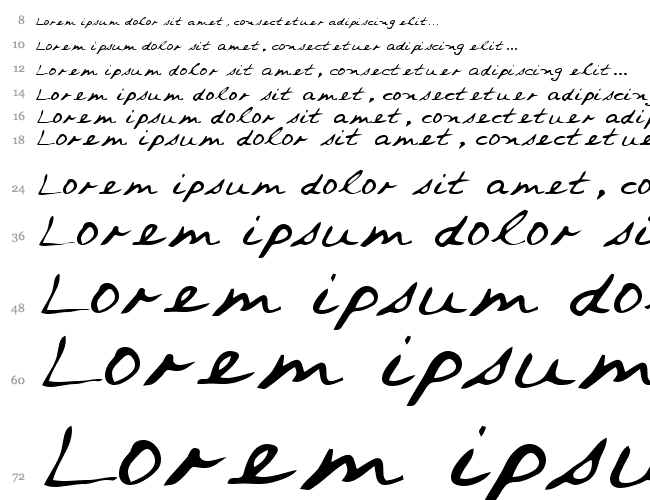 8 Lorem ipsum dolor sit amet, consectetuer adipiscing elit...
10 Lorem ipsum dolor sit amet, consectetuer adipiscing elit...
12 Lorem ipsum dolor sit amet, consectetuer adipiscing elit...
14 Lorem ipsum dolor sit amet, consectetuer adipiscing
16 Lorem ipsum dolor sit amet, consectetuer adip
18 Lorem ipsum dolor sit amet, consectetue
24 Lorem ipsum dolor sit amet, co
36 Lorem ipsum dolor si
48 Lorem ipsum do
60 Lorem ipsum
72 Lorem ipsu